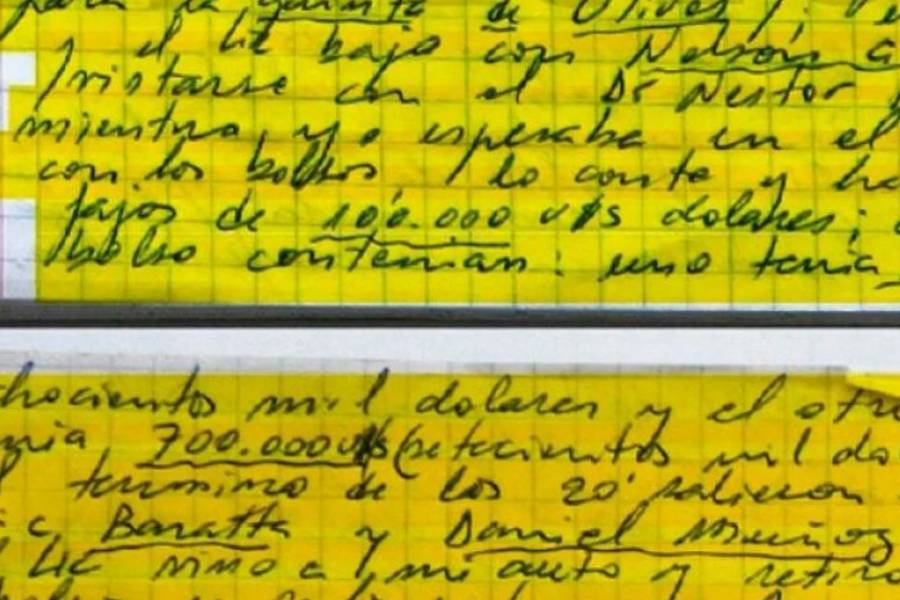 para la quinta de Olivos).
el Lic bajo con Nelson
/vistarse con el Dr Nestor
mientra, yo esperaba en el
con los bolsos / lo conte y
fajos de 100.000 u$s dolares;
bolso contenian: uno tenia
hocientos mil dolares y el otro
nia 700.000 u$s (setecientos mil do
termino de los 20' salieron
Baratta y Daniel Muñoz
Lic vino a / mi auto y retiro